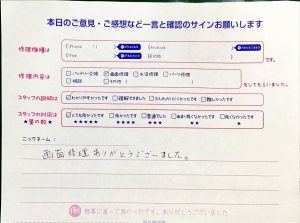 本日のご意見・ご感想など一言と確認のサインお願いします
修理機種は
iPhone
Android
iPad
その他
です。
修理内容は
バッテリー交換
画面修理
水没修理
パーツ修理
をしてもらいました。
スタッフの説明は
わかりやすかったです
理解できました
少しわかりにくかったです
難しかったです
スタッフの対応は
★星の数★
とても良かったです
良かったです
普通でした
★★★★★
★★★★
★★★
★★
★
ニックネーム:
画面修理 ありがとうございました。
無事に直って良かったです。ありがとうございました